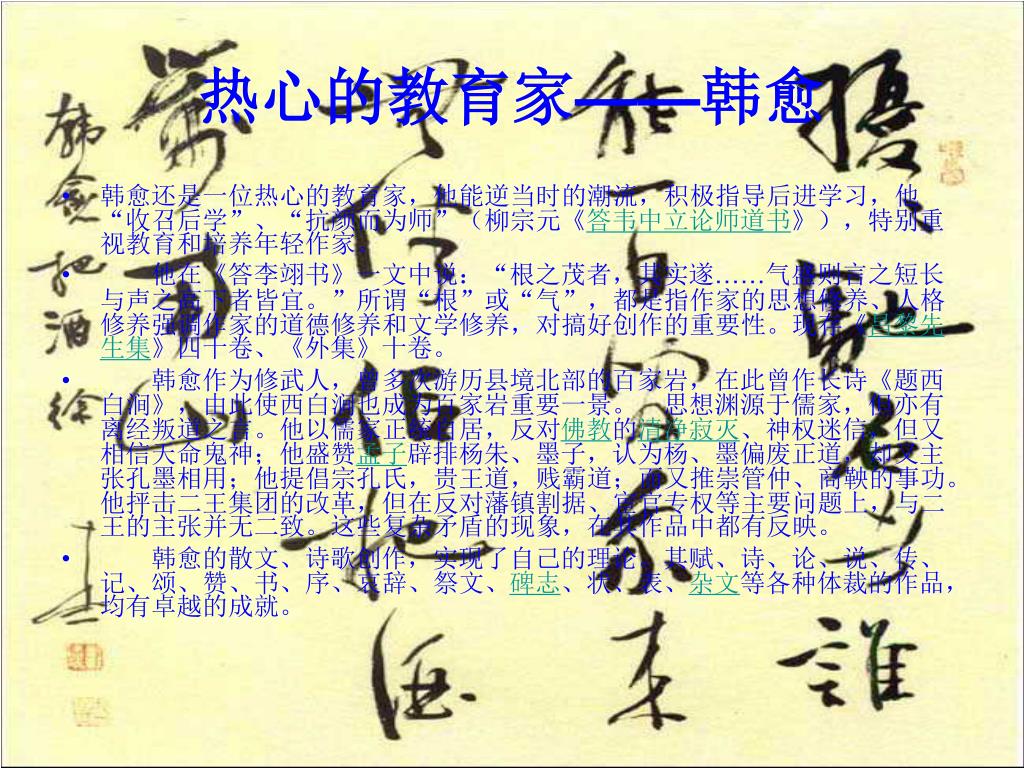 热心的教育家——韩愈
• 韩愈还是一位热心的教育家，他能逆当时的潮流，积极指导后进学习，他
“收召后学”、“抗颜而为师”（柳宗元《答韦中立论师道书》），特别重
视教育和培养年轻作家。
• 他在《答李翊书》一文中说：“根之茂者，其实遂……气盛则言之短长
与声之高下者皆宜。”所谓“根”或“气”，都是指作家的思想修养、人格
修养强调作家的道德修养和文学修养，对搞好创作的重要性。现存《昌黎先
生集》四十卷、《外集》十卷。
• 韩愈作为修武人，曾多次游历县境北部的百家岩，在此曾作长诗《题西
白涧》，由此使西白涧也成为百家岩重要一景。 思想渊源于儒家，但亦有
离经叛道之言。他以儒家正统自居，反对佛教的清净寂灭、神权迷信，但又
相信天命鬼神；他盛赞孟子辟排杨朱、墨子，认为杨、墨偏废正道，却又主
张孔墨相用；他提倡宗孔氏，贵王道，贱霸道；而又推崇管仲、商鞅的事功。
他抨击二王集团的改革，但在反对藩镇割据、宦官专权等主要问题上，与二
王的主张并无二致。这些复杂矛盾的现象，在其作品中都有反映。
• 韩愈的散文、诗歌创作，实现了自己的理论。其赋、诗、论、说、传、
记、颂、赞、书、序、哀辞、祭文、碑志、状、表、杂文等各种体裁的作品，
均有卓越的成就。
擾擾馳名者誰
能一日闲我来
无伴侣把酒
對南山
韩愈把酒 徐